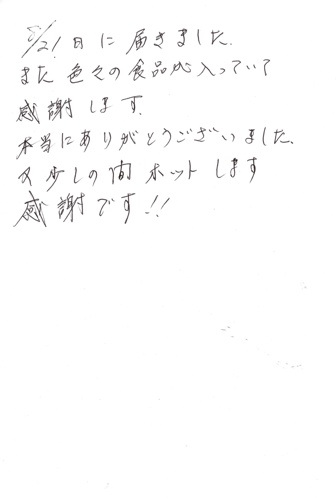 8/21日に届きました。
また色々の食品が入っていて
感謝します。
本当にありがとうございました。
又少しの間ホットします
感謝です!!